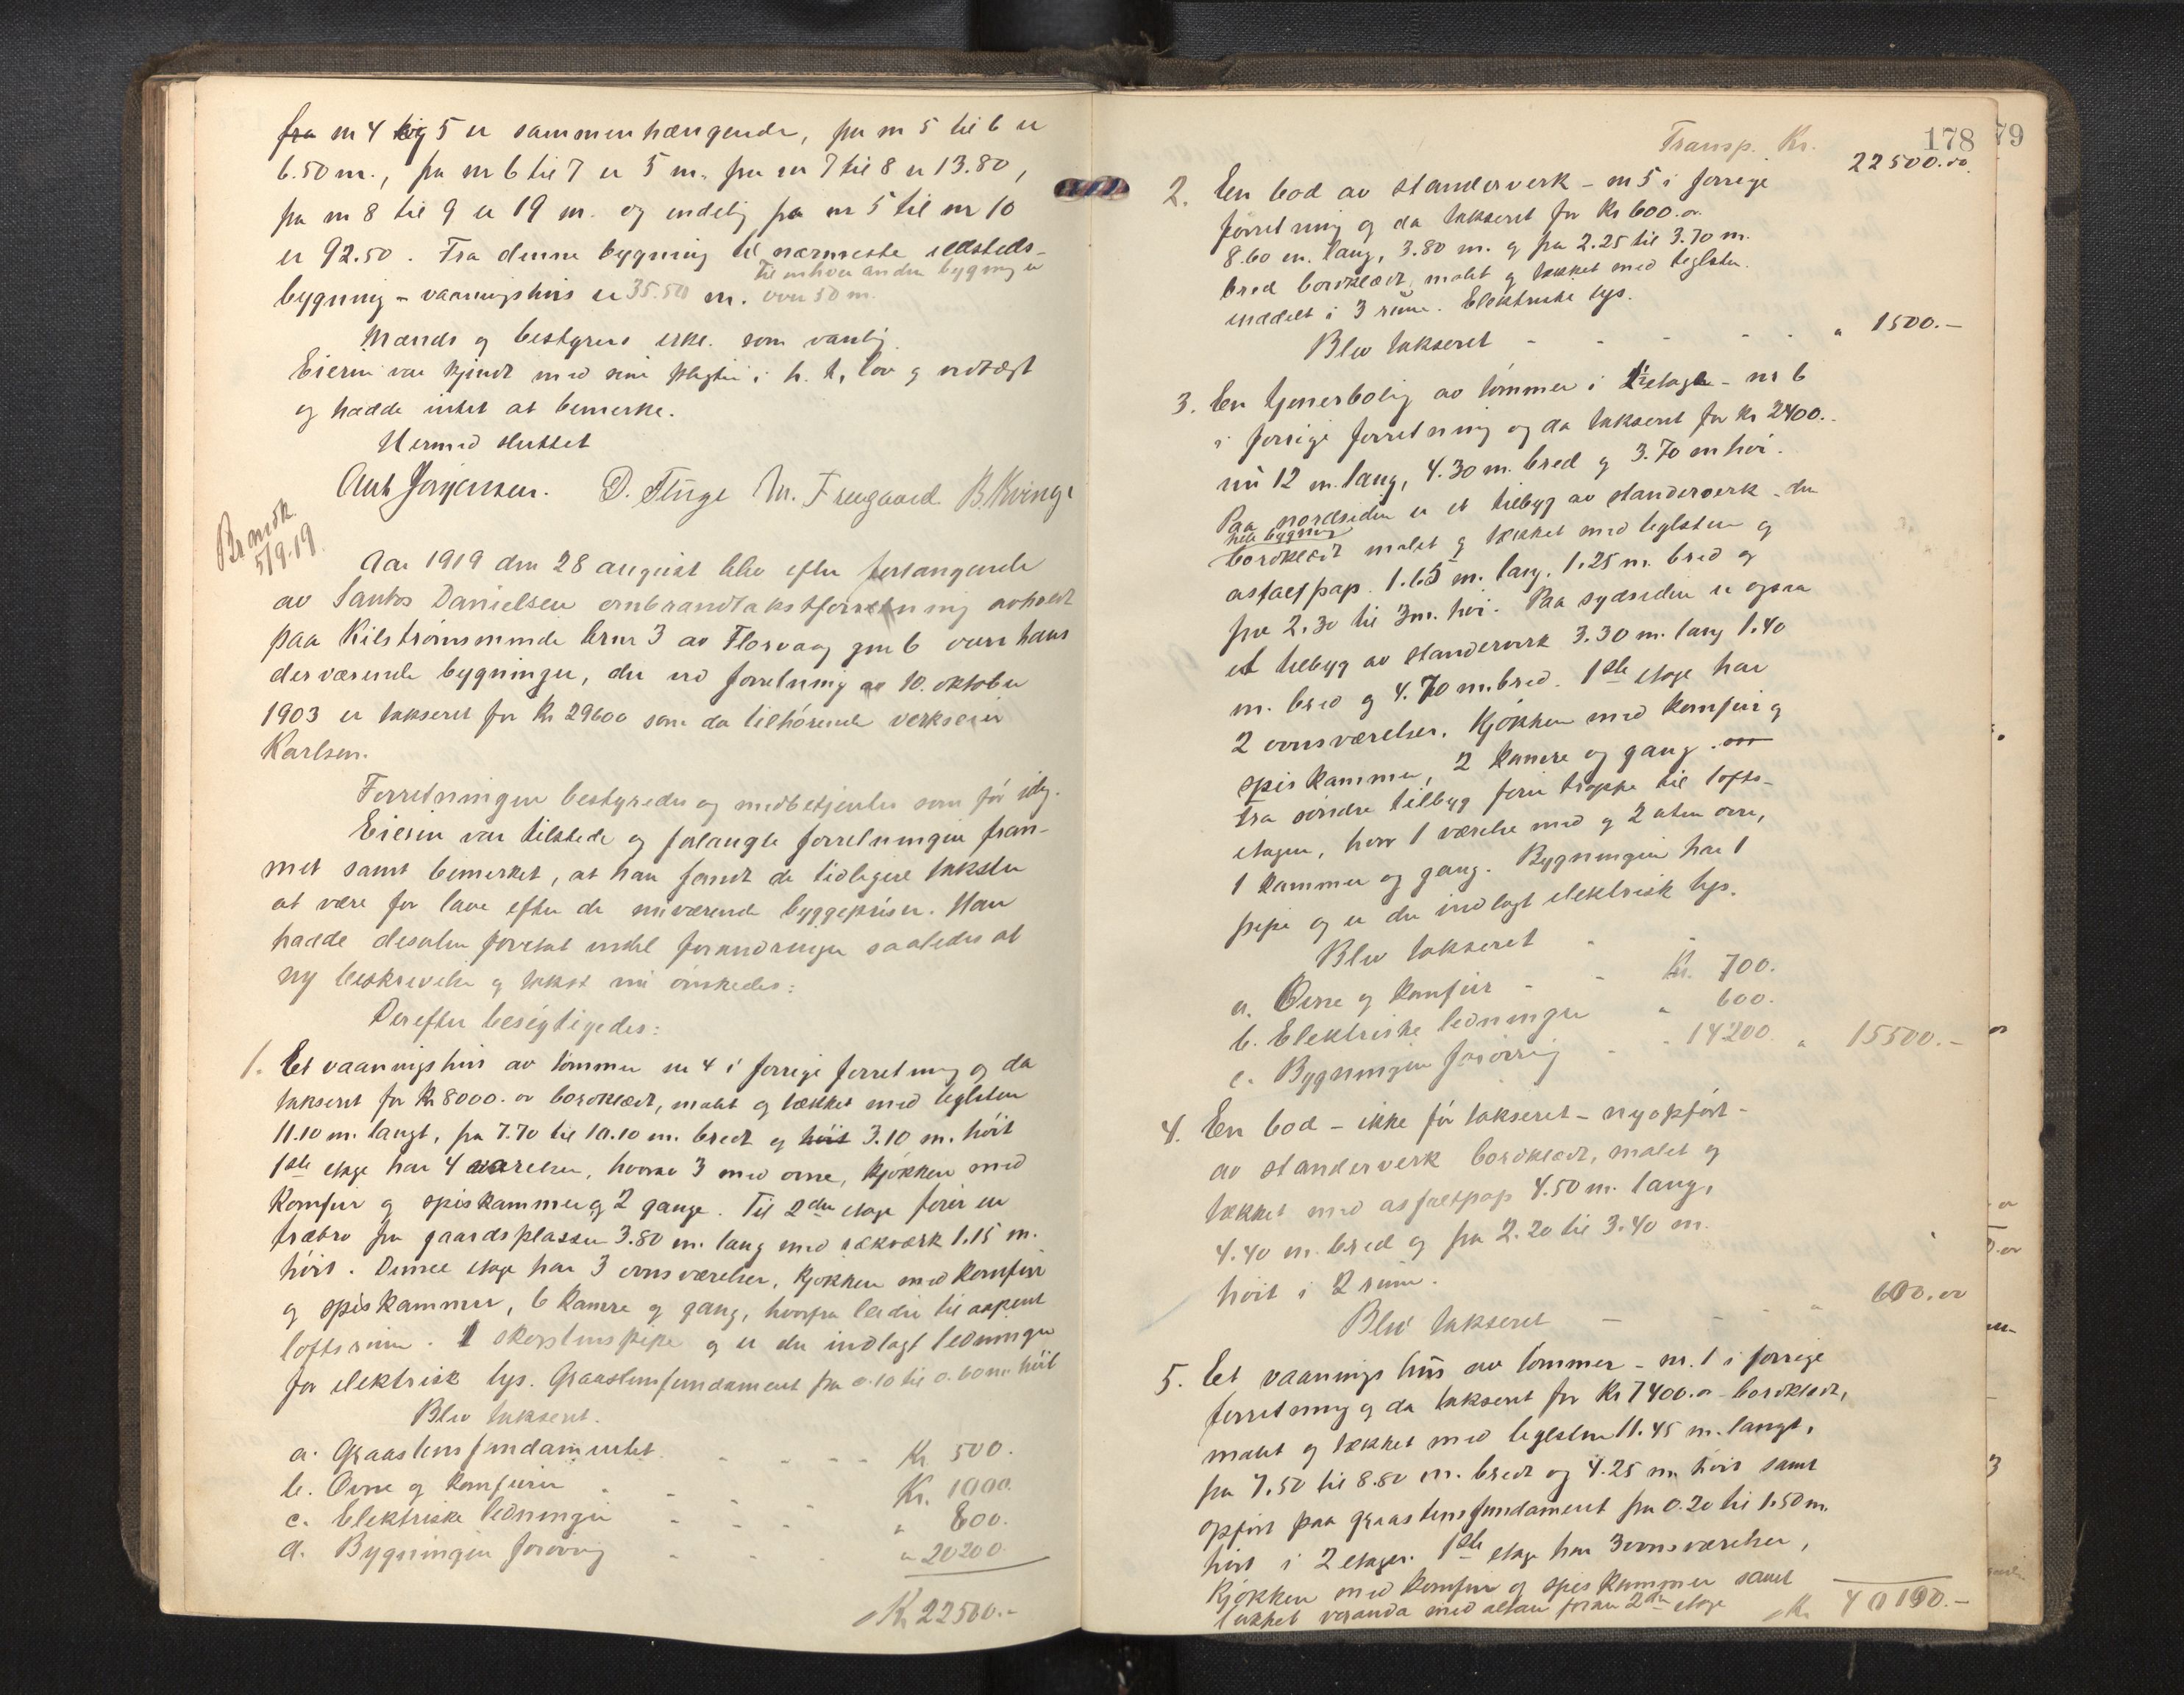 fra nr 4 og 5 er sammenhængende, fra nr 5 til 6 er
6.50 m., fra nr 6 til 7 er 5 m. fra nr 7 til 8 er 13.80,
fra nr 8 til 9 er 19 m. og endelig fra nr 5 til nr 10
er 92.50. Fra denne bygning til nærmeste ildsteds-
til enhver anden bygning er
bygning - vaaningshus er 35.50 m. over 50 m.
Mænds og bestyrers erkl. som vanlig.
Eieren var kjendt med sine pligter i h. t. lov og vedtægt
og hadde intet at bemerke.
Hermed sluttet
Ant Jørgensen. D. Stuge M. Freegaard B. Kvinge
Brandk.
5/9.19.
Aar 1919 den 28 august blev efter forlangende
av Santos Danielsen ombrandtakstforretning avholdt
paa Kilstrømsminde brnr 3 av Florvaag gnr 6 over hans
derværende bygninger, der ved forretning av 10. oktober
1903 er takseret for kr 29600 som da tilhørende verkseier
Karlsen.
Forretningen bestyredes og medbetjentes som før idag.
Eieren var tilstede og forlangte forretningen frem-
met samt bemerket, at han fandt de tidligere takster
at være for lave efter de nuværende byggepriser. Han
hadde desuten foretat endel forandringer saaledes at
ny beskrivelse og takst nu ønskedes:
Derefter besigtigedes:
1. Et vaaningshus av tømmer nr 4 i forrige forretning og da
takseret for kr 8000.00 bordklædt, malt og tækket med teglsten
11.10 m. langt, fra 7.70 til 10.10 m. bredt og høit 3.10 m. høit
1ste etage har 4 værelser, hvorav 3 med ovne, kjøkken med
komfur og spiskammer og 2 gange. Til 2den etage fører en
træbro fra gaardsplassen 3.80 m. lang med rækværk 1.15 m.
høit. Denne etage har 3 ovnsværelser, kjøkken med komfur
og spiskammer, 6 kamre og gang, hvorfra leider til aapent
loftsrum. 1 skorstenspipe og er der indlagt ledninger
for elektrisk lys. Graastensfundament fra 0.10 til 0.60 m. høit
Blev takseret.
a. Graastensfundamentet - - - - Kr. 500.
b. Ovne og komfurer - - - - Kr. 1000.
c. Elektriske ledninger - - - " 800.
d. Bygningen forøvrig - - - " 20200.
Kr. 22500.-
178
79
Transp. Kr. 22500.00
2. En bod av standerverk - nr 5 i forrige
forretning og da takseret for kr 600.00
8.60 m. lang, 3.80 m. og fra 2.25 til 3.70 m.
bred bordklædt, malt og tækket med teglsten.
inddelt i 3 rum. Elektriske lys.
Blev takseret - - - - - " 1500.-
3. En tjenerbolig av tømmer i 1½ etage - nr 6
i forrige forretning og da takseret for kr 2400.-
nu 12 m. lang, 4.30 m. bred og 3.70 m høi.
Paa nordsiden er et tilbyg av standerverk - den
hele bygning
bordklædt malt og tækket med teglsten og
asfaltpap. 1.65 m. lang, 1.25 m. bred og
fra 2.30 til 3 m. høi. Paa sydsiden er ogsaa
et tilbyg av standerverk 3.30 m. lang 1.40
m. bred og 4.70 m. bred. 1ste etage har
2 ovnsværelser, kjøkken med komfur og
spiskammer, 2 kamre og gang.
Fra søndre tilbyg fører trappe til lofts-
etagen, hvor 1 værelse med og 2 uten ovn,
1 kammer og gang. Bygningen har 1
pipe og er der indlagt elektrisk lys.
Blev takseret - -
a. Ovne og komfur - - Kr. 700.
b. Elektriske ledninger " 600.
c. Bygningen forøvrig - " 14200 " 15500.-
4. En bod - ikke før takseret - nyopført -
av standerverk bordklædt, malt og
tækket med asfaltpap 4.50 m. lang,
4.40 m. bred og fra 2.20 til 3.40 m.
høit i 2 rum.
Blev takseret - - - " 600.00
5. Et vaaningshus av tømmer - nr. 1 i forrige
forretning og da takseret for kr 7400.00 - bordklædt,
malt og tækket med teglsten 11.45 m. langt,
fra 7.50 til 8.80 m. bredt og 4.25 m. høit samt
opført paa graastensfundament fra 0.20 til 1.50 m.
høit i 2 etager. 1ste etage har 3 ovnsværelser,
kjøkken med komfur og spiskammer samt
lukket veranda med altan foran 2den etage
Kr. 40100.-